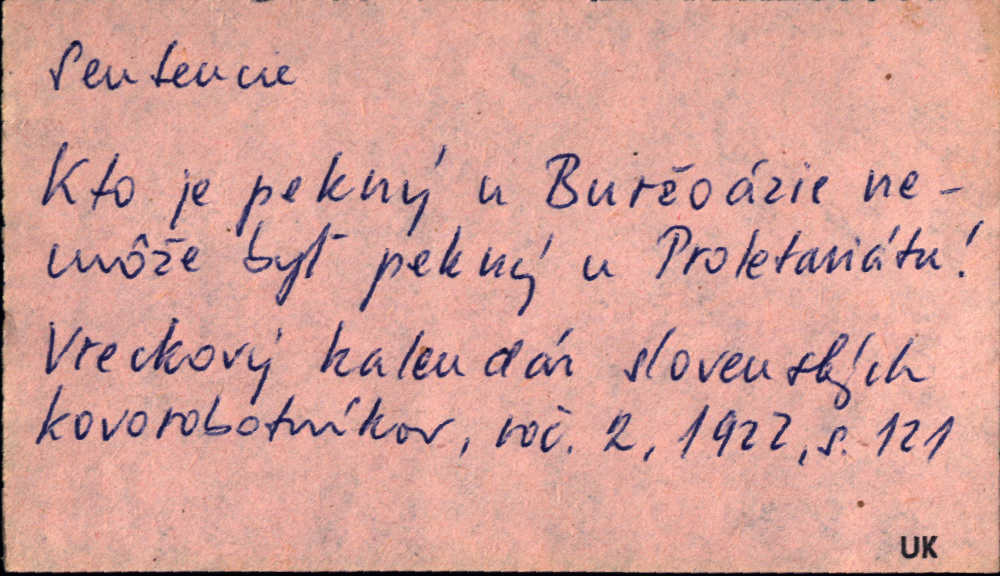 Sentencie
Kto je pekný u Buržoázie ne-
môže byť pekný u Proletariátu!
Vreckový kalendár slovenských
kovorobotníkov, roč. 2, 1922, s. 121
UK